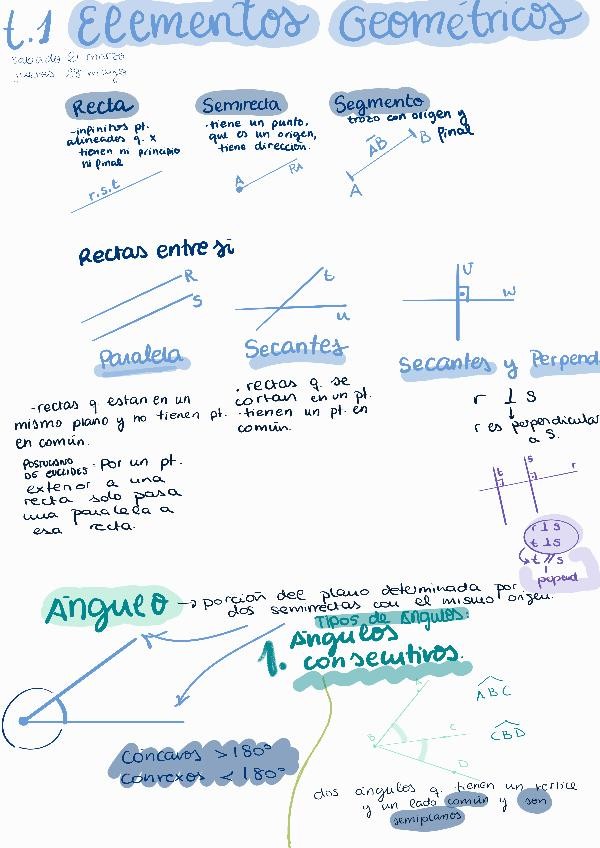 t.1 Elementos Geométricos
Recta
-infinitos pt.
alineados q. x
tienen ni principio
ni final
r.s.t
Semirecta
·tiene un punto,
que es un origen,
tiene dirección.
A
Segmento
trozo con origen y
final
AB
B
A
Rectas entre si
R
S
Paralela
-rectas q estan en un
mismo plano y no tienen pt.
en común.
POSTULADO
DE EUCLIDES · Por un pt.
exterior a una
recta solo pasa
una paralela a
esa recta.
t
u
Secantes
. rectas q. se
cortan en un pt.
-tienen un pt. en
común.
U
W
Secantes y Perpend
r ⊥ s
r es perpendicular
a s.
t
s
r
r ⊥ s
t ⊥ s
t // s
perpend
Ángulo → porción del plano determinada por
dos semirectas con el mismo origen.
Cóncavos > 180°
Convexos < 180°
Tipos de Ángulos:
1. Ángulos
consecutivos.
B
C
D
ABC
CBD
dos ángulos q. tienen un vertice
y un lado común y son
semiplanos